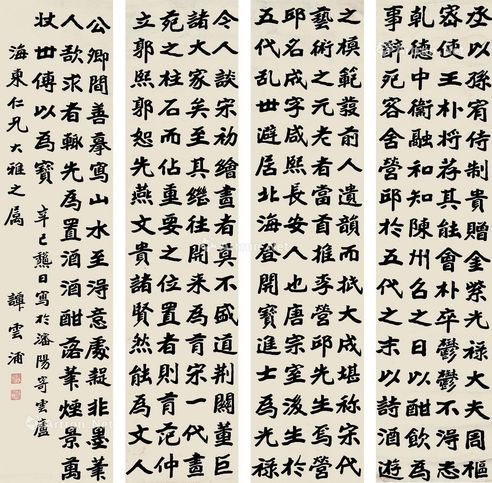 今人談宋初繪畫者莫不盛道荊關董巨
諸大家矣至其繼往開來為有宋一代畫
苑之柱石而佔重要之位置者則有范仲
立郭熙郭恕先燕文貴諸賢然能為文人
之模範發前人遺韻而抵大成堪稱宋代
藝術之元老者當首推李營邱先生焉營
邱名成字咸熙長安人也唐宗室後生於
五代亂世避居北海登開寶進士為光祿
丞以孫宥貴贈金紫光祿大夫周樞
密使王朴將荐其能會朴卒鬱鬱不得志
乾德中衞融和知陳州名之日以酣飲為
事醉死客舍營邱於五代之末以詩酒遊
公卿間善摹寫山水至得意處疑非墨筆
人欲求者輒先為置酒酒酣落筆煙景萬
狀世傳以為寶
海東仁兄大雅之屬
辛巳 日寫於瀋陽寄雲廬
譚雲浦